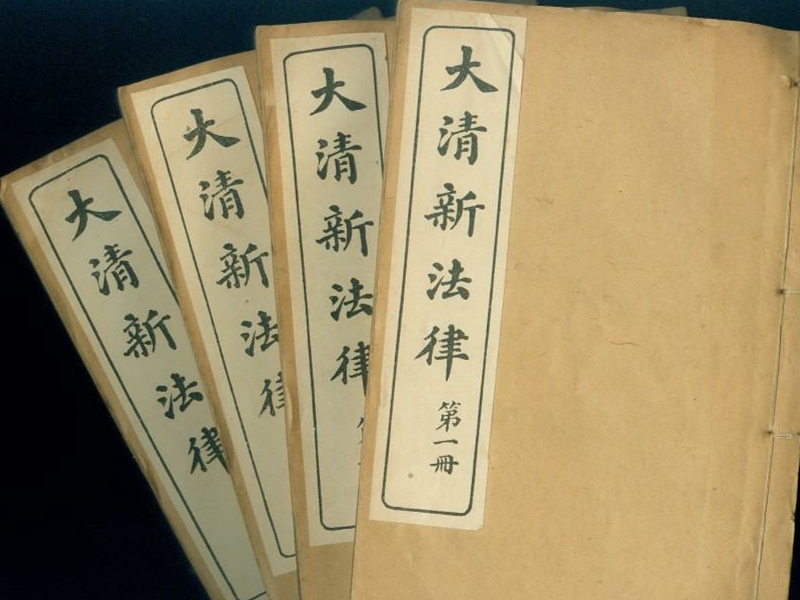 大清新法律
第一冊
大清新法律
大清新法律
大清新法律